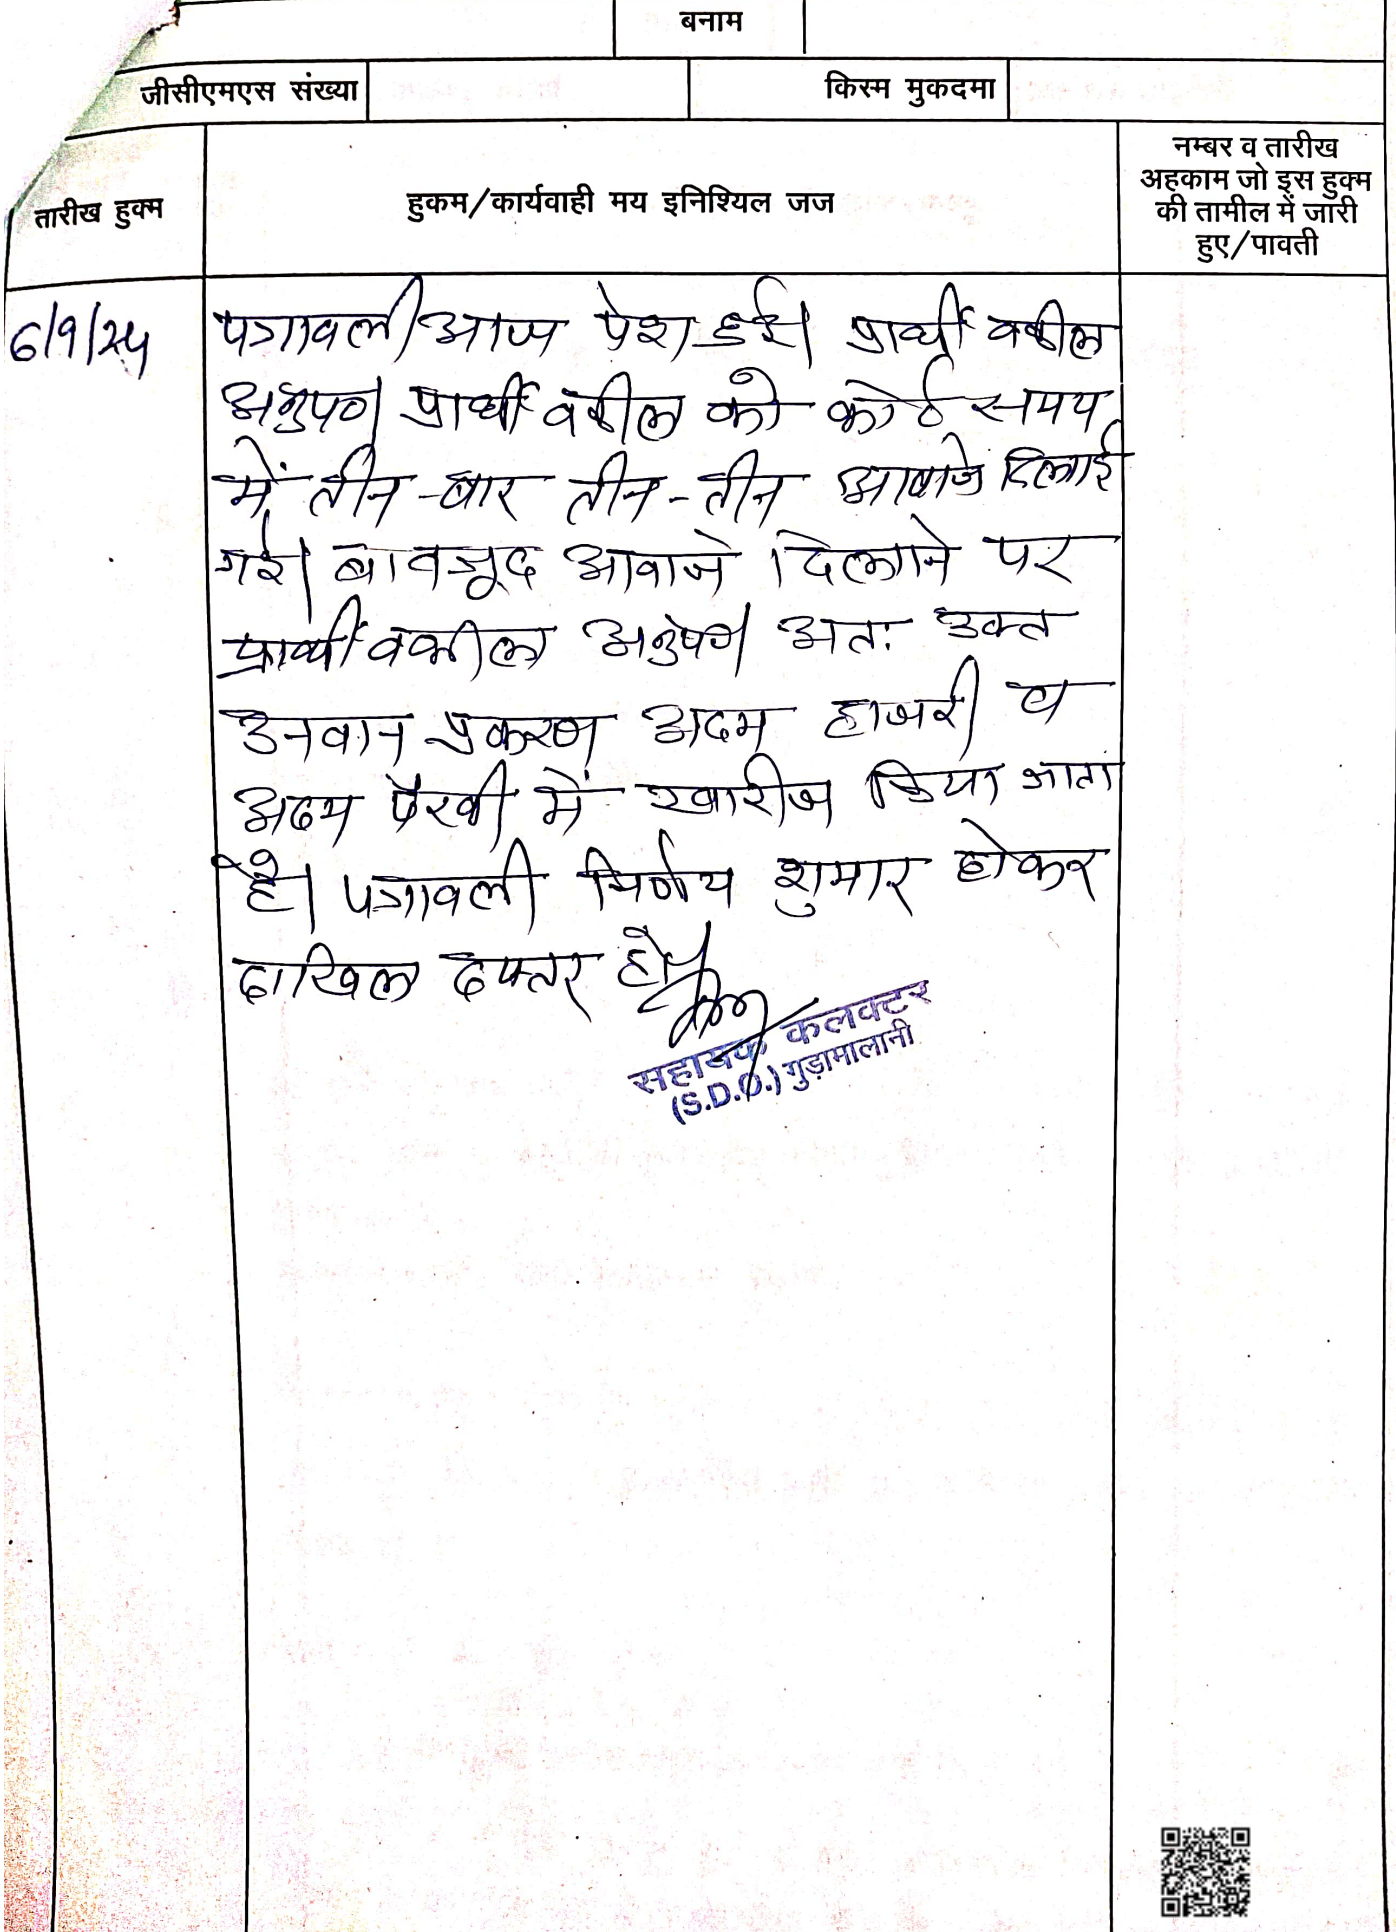 बनाम
जीसीएमएस संख्या किस्म मुकदमा
तारीख हुक्म
हुकम/कार्यवाही मय इनिश्यिल जज
नम्बर व तारीख
अहकाम जो इस हुक्म
की तामील में जारी
हुए/पावती
6/9/24
पत्रावली आज पेश हुई। प्रार्थी वकील
अनुपण। प्रार्थी वकील को कोर्ट समय
में तीन-बार तीन-तीन आवाजे दिलाई
गई। बावजूद आवाजे दिलाने पर
प्रार्थी वकील अनुपण। अतः उक्त
उनवान प्रकरण अदम हाजरी व
अदम पैरवी में खारीज किया जाता
है। पत्रावली निर्णय शुमार होकर
दाखिल दफ्तर हो।
सहायक कलक्टर
(S.D.O.) गुड़ामालानी